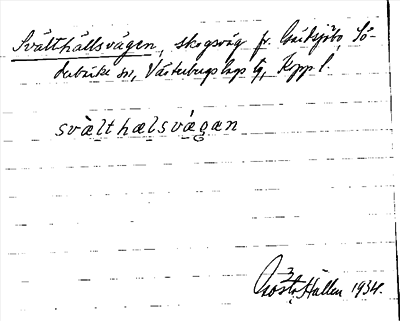 Svälthällsvägen, skogsväg fr. Gridsjöbo, Sö-
derbärke sn, Västerbergslags tg, Kopp. l.
svàlthælsvä́gan
Gösta Hallen 1934.